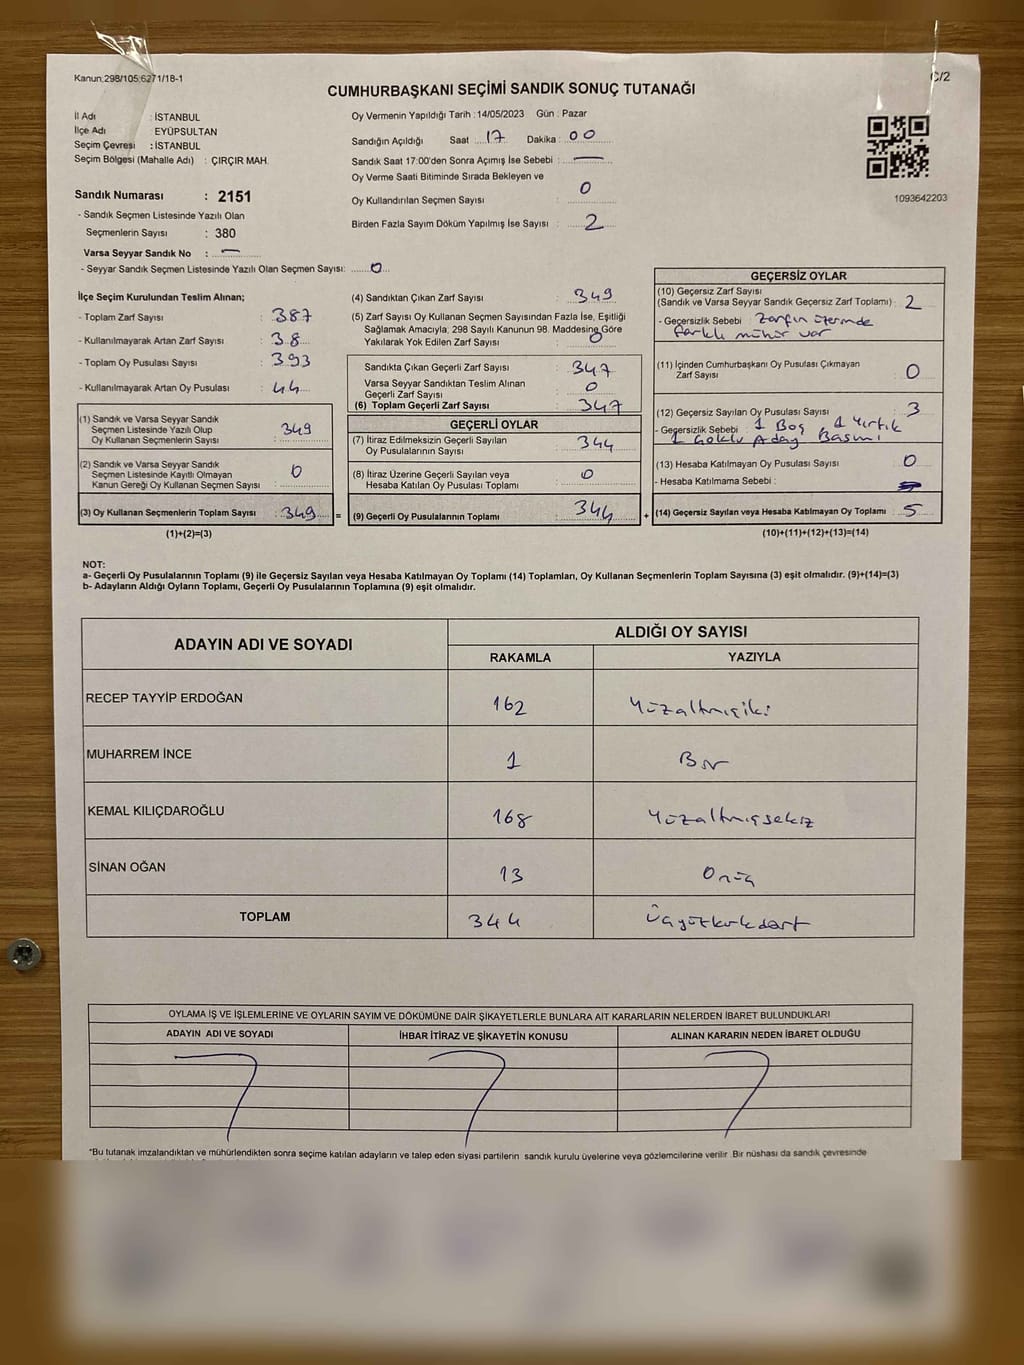 Kanun:298/105;6271/18-1
C/2
CUMHURBAŞKANI SEÇİMİ SANDIK SONUÇ TUTANAĞI
İl Adı : İSTANBUL
İlçe Adı EYÜPSULTAN
Seçim Çevresi : İSTANBUL
Seçim Bölgesi (Mahalle Adı) : ÇIRÇIR MAH.
Sandık Numarası : 2151
- Sandık Seçmen Listesinde Yazılı Olan
Seçmenlerin Sayısı : 380
Varsa Seyyar Sandık No : —
- Seyyar Sandık Seçmen Listesinde Yazılı Olan Seçmen Sayısı: 0
Oy Vermenin Yapıldığı Tarih :14/05/2023 Gün : Pazar
Sandığın Açıldığı Saat 17 Dakika : 00
Sandık Saat 17:00'den Sonra Açımış İse Sebebi : —
Oy Verme Saati Bitiminde Sırada Bekleyen ve
Oy Kullandırılan Seçmen Sayısı : 0
Birden Fazla Sayım Döküm Yapılmış İse Sayısı : 2
1093642203
İlçe Seçim Kurulundan Teslim Alınan;
- Toplam Zarf Sayısı : 387
- Kullanılmayarak Artan Zarf Sayısı : 38
- Toplam Oy Pusulası Sayısı : 393
- Kullanılmayarak Artan Oy Pusulası : 44
(1) Sandık ve Varsa Seyyar Sandık
Seçmen Listesinde Yazılı Olup
Oy Kullanan Seçmenlerin Sayısı : 349
(2) Sandık ve Varsa Seyyar Sandık
Seçmen Listesinde Kayıtlı Olmayan
Kanun Gereği Oy Kullanan Seçmen Sayısı : 0
(3) Oy Kullanan Seçmenlerin Toplam Sayısı : 349 =
(1)+(2)=(3)
(4) Sandıktan Çıkan Zarf Sayısı : 349
(5) Zarf Sayısı Oy Kullanan Seçmen Sayısından Fazla İse, Eşitliği
Sağlamak Amacıyla, 298 Sayılı Kanunun 98. Maddesine Göre
Yakılarak Yok Edilen Zarf Sayısı : 0
Sandıkta Çıkan Geçerli Zarf Sayısı : 347
Varsa Seyyar Sandıktan Teslim Alınan
Geçerli Zarf Sayısı : 0
(6) Toplam Geçerli Zarf Sayısı : 347
GEÇERLİ OYLAR
(7) İtiraz Edilmeksizin Geçerli Sayılan
Oy Pusulalarının Sayısı : 344
(8) İtiraz Üzerine Geçerli Sayılan veya
Hesaba Katılan Oy Pusulası Toplamı : 0
(9) Geçerli Oy Pusulalarının Toplamı : 344 +
GEÇERSİZ OYLAR
(10) Geçersiz Zarf Sayısı
(Sandık ve Varsa Seyyar Sandık Geçersiz Zarf Toplamı) : 2
- Geçersizlik Sebebi : Zarfın üzerinde
farklı mühür var
(11) İçinden Cumhurbaşkanı Oy Pusulası Çıkmayan
Zarf Sayısı : 0
(12) Geçersiz Sayılan Oy Pusulası Sayısı : 3
- Geçersizlik Sebebi : 1 Boş 1 Yırtık
1 Çoklu Aday Basımı
(13) Hesaba Katılmayan Oy Pusulası Sayısı : 0
- Hesaba Katılmama Sebebi :
(14) Geçersiz Sayılan veya Hesaba Katılmayan Oy Toplamı : 5
(10)+(11)+(12)+(13)=(14)
NOT:
a- Geçerli Oy Pusulalarının Toplamı (9) ile Geçersiz Sayılan veya Hesaba Katılmayan Oy Toplamı (14) Toplamları, Oy Kullanan Seçmenlerin Toplam Sayısına (3) eşit olmalıdır. (9)+(14)=(3)
b- Adayların Aldığı Oyların Toplamı, Geçerli Oy Pusulalarının Toplamına (9) eşit olmalıdır.
ADAYIN ADI VE SOYADI ALDIĞI OY SAYISI
RAKAMLA YAZIYLA
RECEP TAYYİP ERDOĞAN 162 Yüzaltmışiki
MUHARREM İNCE 1 Bir
KEMAL KILIÇDAROĞLU 168 Yüzaltmışsekiz
SİNAN OĞAN 13 Onüç
TOPLAM 344 Üçyüzkırkdört
OYLAMA İŞ VE İŞLEMLERİNE VE OYLARIN SAYIM VE DÖKÜMÜNE DAİR ŞİKAYETLERLE BUNLARA AİT KARARLARIN NELERDEN İBARET BULUNDUKLARI
ADAYIN ADI VE SOYADI İHBAR İTİRAZ VE ŞİKAYETİN KONUSU ALINAN KARARIN NEDEN İBARET OLDUĞU
*Bu tutanak imzalandıktan ve mühürlendikten sonra seçime katılan adayların ve talep eden siyasi partilerin sandık kurulu üyelerine veya gözlemcilerine verilir. Bir nüshası da sandık çevresinde